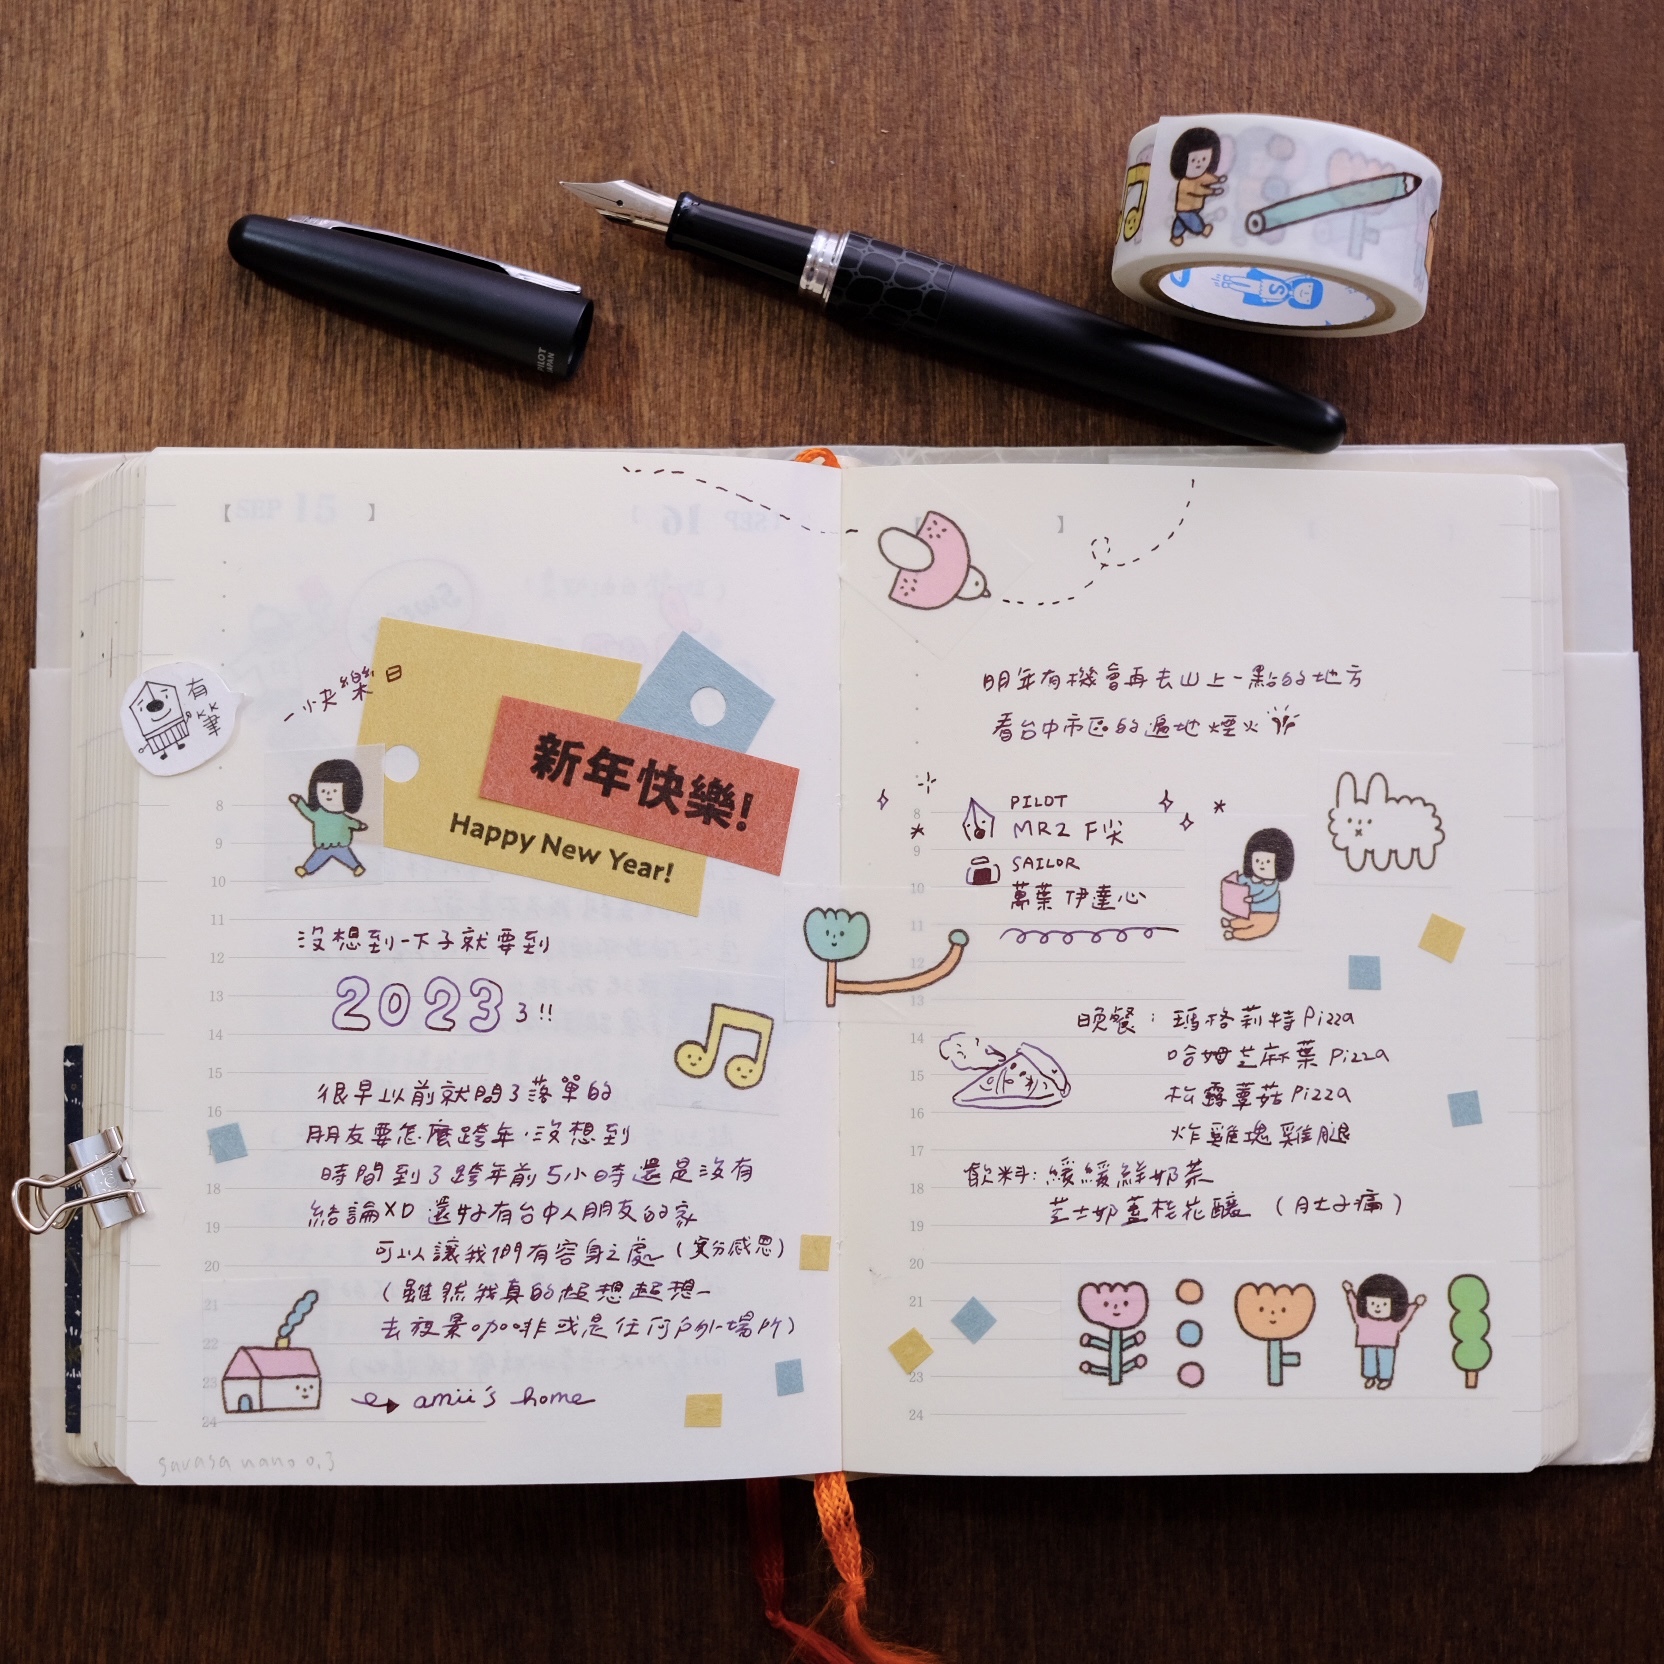 PILOT
JAPAN
SEP 15
SEP 16
有筆
一小快樂日
新年快樂!
Happy New Year!
8
9
10
11
12
13
14
15
16
18
19
20
21
22
23
24
沒想到一下子就要到
2023 了!!
很早以前就問了落單的
朋友要怎麼跨年,沒想到
時間到了跨年前5小時還是沒有
結論XD 還好有台中人朋友的家
可以讓我們有容身之處(實分感恩)
(雖然我真的超想超想一
去夜景咖啡或是任何戶外場所)
amii's home
guvasa nano 0.3
明年有機會再去山上一點的地方
看台中市區的遍地煙火
8
9
10
11
12
13
14
15
16
17
18
19
20
21
22
23
24
PILOT
MR2 F尖
SAILOR
萬葉 伊達心
晚餐:瑪格莉特Pizza
哈姆芝麻葉 Pizza
松露蕈菇 Pizza
炸雞塊雞腿
飲料:緩緩鮮奶茶
芝士奶蓋桂花釀 (肚子痛)